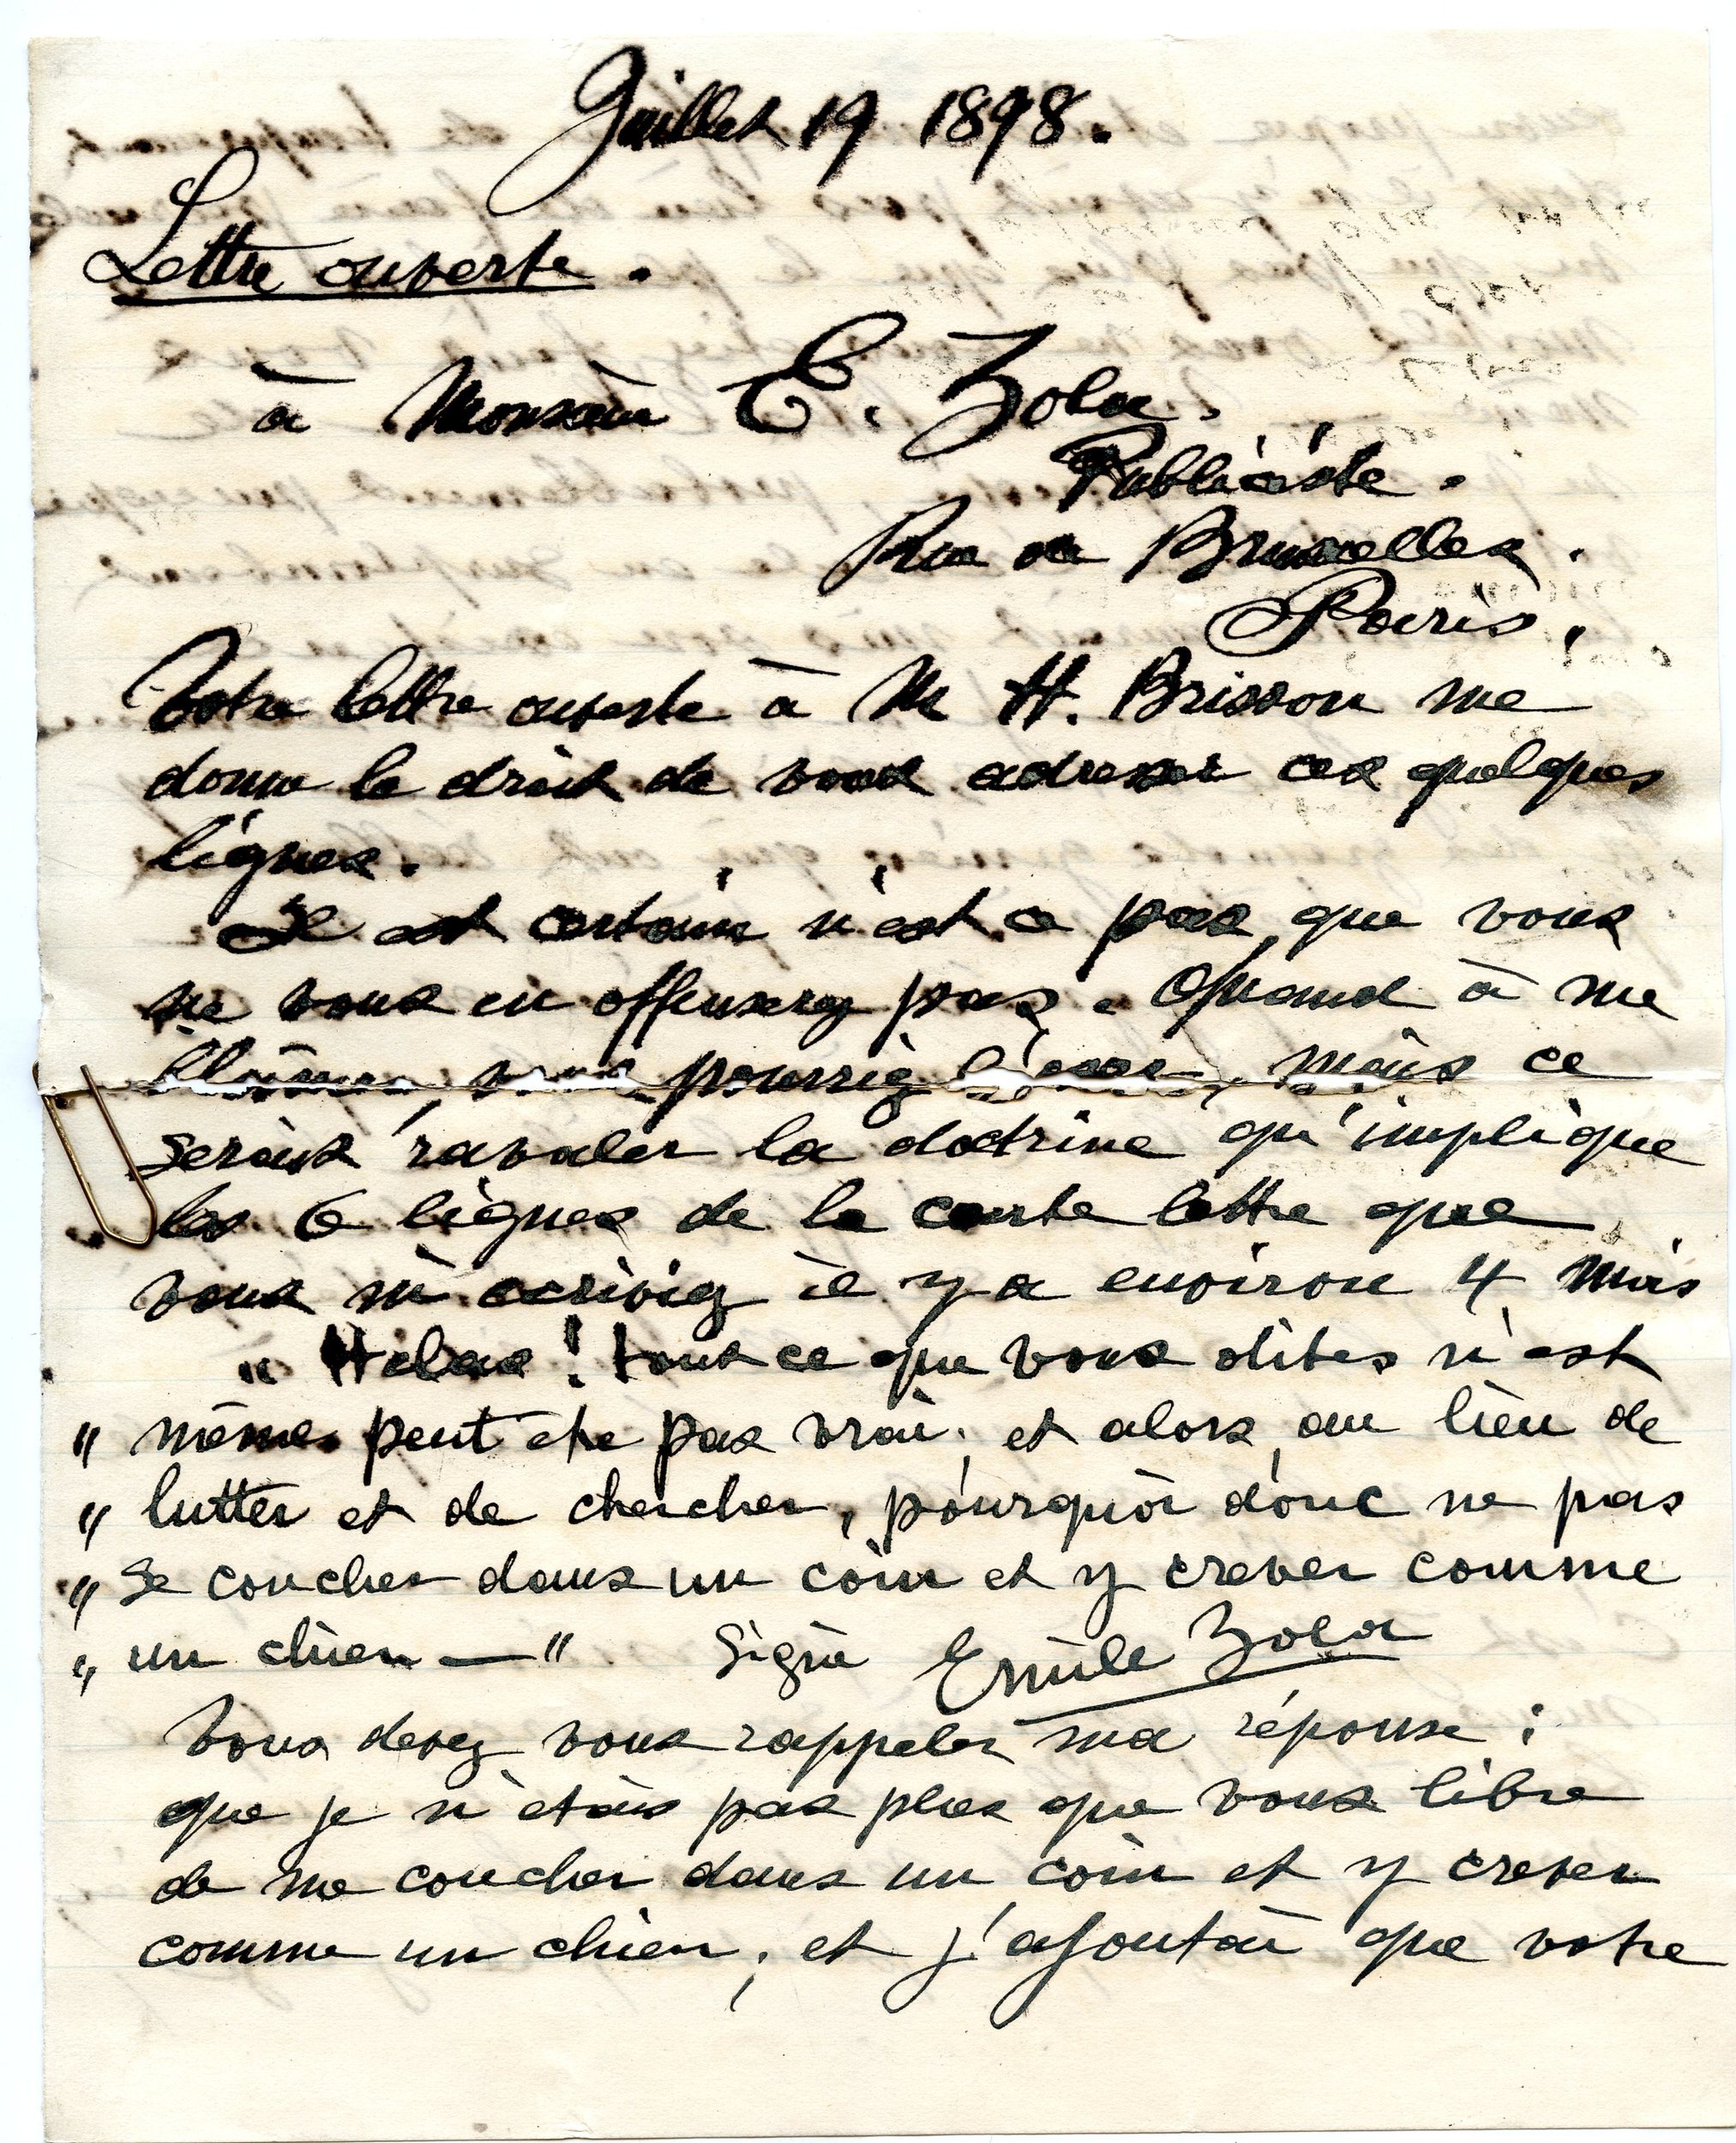 Juillet 19 1898.
Lettre ouverte.
à Monsieur E. Zola.
Publiciste.
Rue de Bruxelles.
Paris.
Votre lettre ouverte à M H. Brisson me
donne le droit de vous adresser ces quelques
lignes.
Il est certain n'est ce pas, que vous
ne vous en offenserez pas. Quand à me
blâmer, vous pourriez l'oser, mais ce
serait ravaler la doctrine qu'implique
les 6 lignes de la courte lettre que
vous m'écriviez il y a environ 4 mois
" Helas ! tout ce que vous dites n'est
" même peut etre pas vrai. et alors, au lieu de
" lutter et de chercher, pourquoi donc ne pas
" se coucher dans un coin et y crever comme
" un chien — " Signé Emile Zola
Vous devez vous rappeler ma réponse :
que je n'étais pas plus que vous libre
de me coucher dans un coin et y crever
comme un chien ; et j'ajoutai que votre